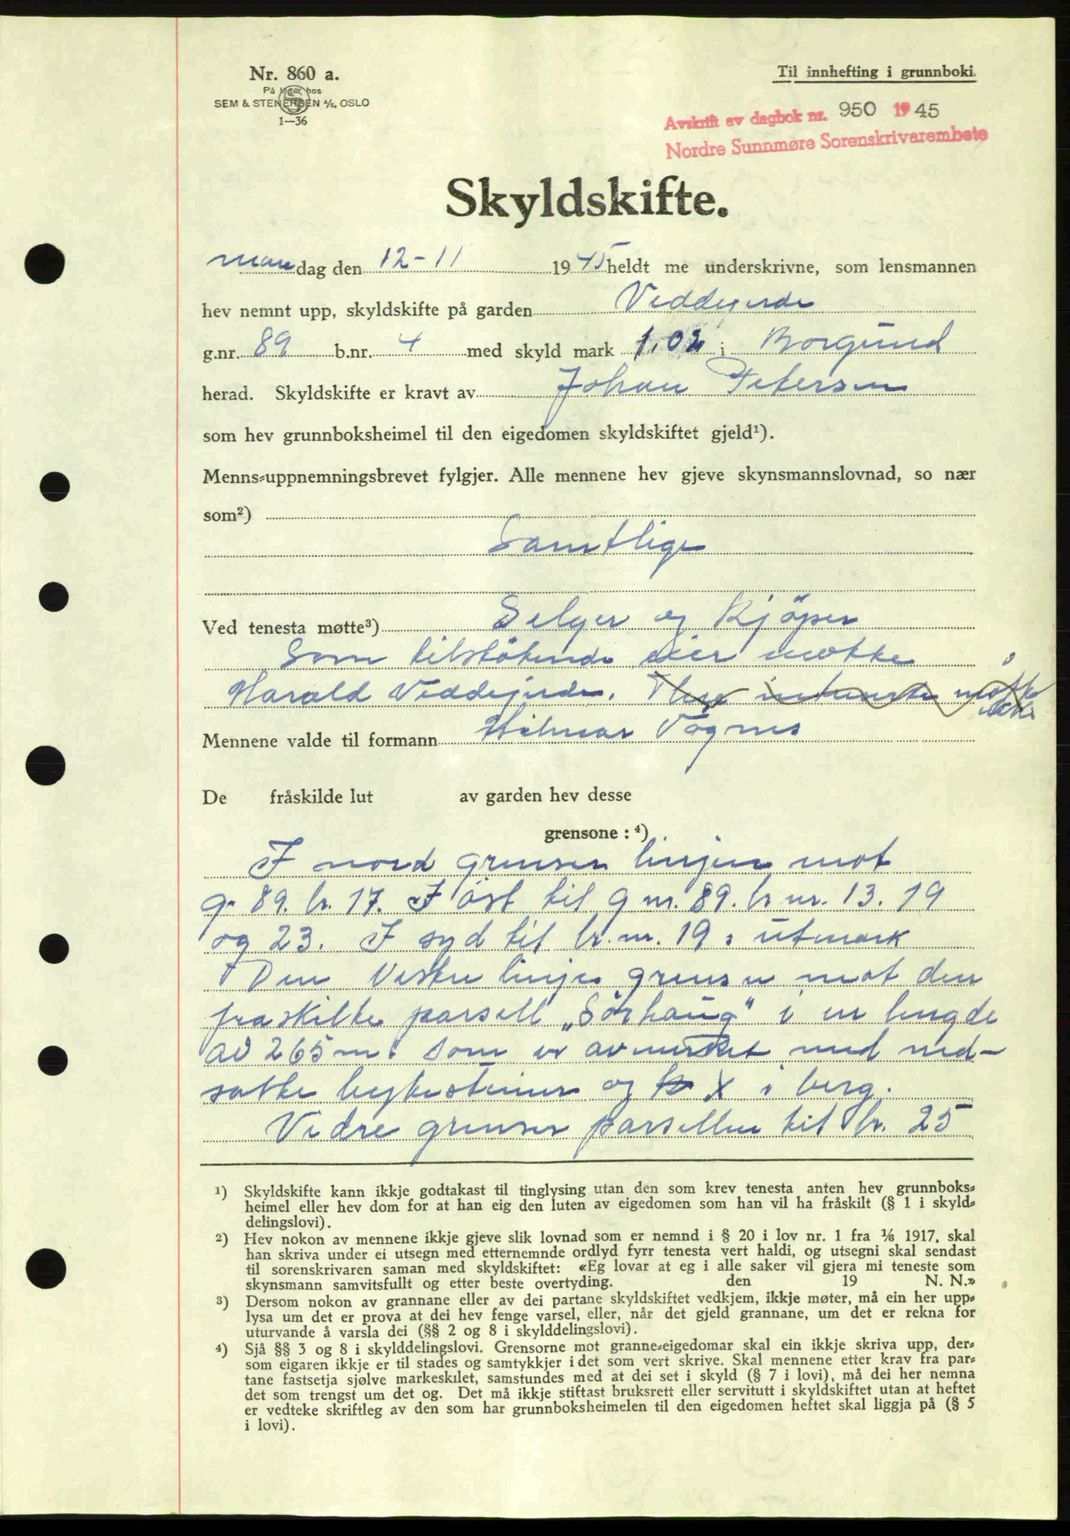 Nr. 860 a.
På lager hos
SEM & STENERSEN A/S, OSLO
1—36
Til innhefting i grunnboki.
Avskrift av dagbok nr. 950 1945
Nordre Sunnmøre Sorenskrivarembete
Skyldskifte.
mandag den 12-11 1945 heldt me underskrivne, som lensmannen
hev nemnt upp, skyldskifte på garden Veddegjerde
g.nr. 89 b.nr. 4 med skyld mark 1.02 i Borgund
herad. Skyldskifte er kravt av Johan Petersen
som hev grunnboksheimel til den eigedomen skyldskiftet gjeld¹).
Menns-uppnemningsbrevet fylgjer. Alle mennene hev gjeve skynsmannslovnad, so nær
som²)
Samtlige
Ved tenesta møtte³) Selger og Kjöper
Som tilstötende eier møtte
Harald Veddegjerde. møtte
ikke
Mennene valde til formann Hilmar Vågnes
De fråskilde lut av garden hev desse
grensone : ⁴)
I nord grenser linjen mot
g. 89. br. 17. I öst til g nr. 89. br nr. 13. 19
og 23. I syd til br. nr. 19 : utmark
Den Vestre linje grenser mot den
fraskilte parsell „Sörhaug" i en lengde
av 265 m. som er avmerket med ned-
satte bytesteiner og X i berg.
Vidre grenser parsellen til br. 25
¹) Skyldskifte kann ikkje godtakast til tinglysing utan den som krev tenesta anten hev grunnboks-
heimel eller hev dom for at han eig den luten av eigedomen som han vil ha fråskilt (§ 1 i skyld-
delingslovi).
²) Hev nokon av mennene ikkje gjeve slik lovnad som er nemnd i § 20 i lov nr. 1 fra ⅙ 1917, skal
han skriva under ei utsegn med etternemnde ordlyd fyrr tenesta vert haldi, og utsegni skal sendast
til sorenskrivaren saman med skyldskiftet: «Eg lovar at eg i alle saker vil gjera mi teneste som
skynsmann samvitsfullt og etter beste overtyding. den 19 N. N.»
³) Dersom nokon av grannane eller av dei partane skyldskiftet vedkjem, ikkje møter, må ein her upp-
lysa um det er prova at dei hev fenge varsel, eller, når det gjeld grannane, um det er rekna for
uturvande å varsla dei (§§ 2 og 8 i skylddelingslovi).
⁴) Sjå §§ 3 og 8 i skylddelingslovi. Grensorne mot granne-eigedomar skal ein ikkje skriva upp, der-
som eigaren ikkje er til stades og samtykkjer i det som vert skrive. Skal mennene etter krav fra par-
tane fastsetja sjølve markeskilet, samstundes med at dei set i skyld (§ 7 i lovi), må dei her nemna
det som trengst um det og. Det må ikkje stiftast bruksrett eller servitutt i skyldskiftet utan at heftet
er vedteke skriftleg av den som har grunnboksheimelen til den eigedomen heftet skal liggja på (§ 5
i lovi).